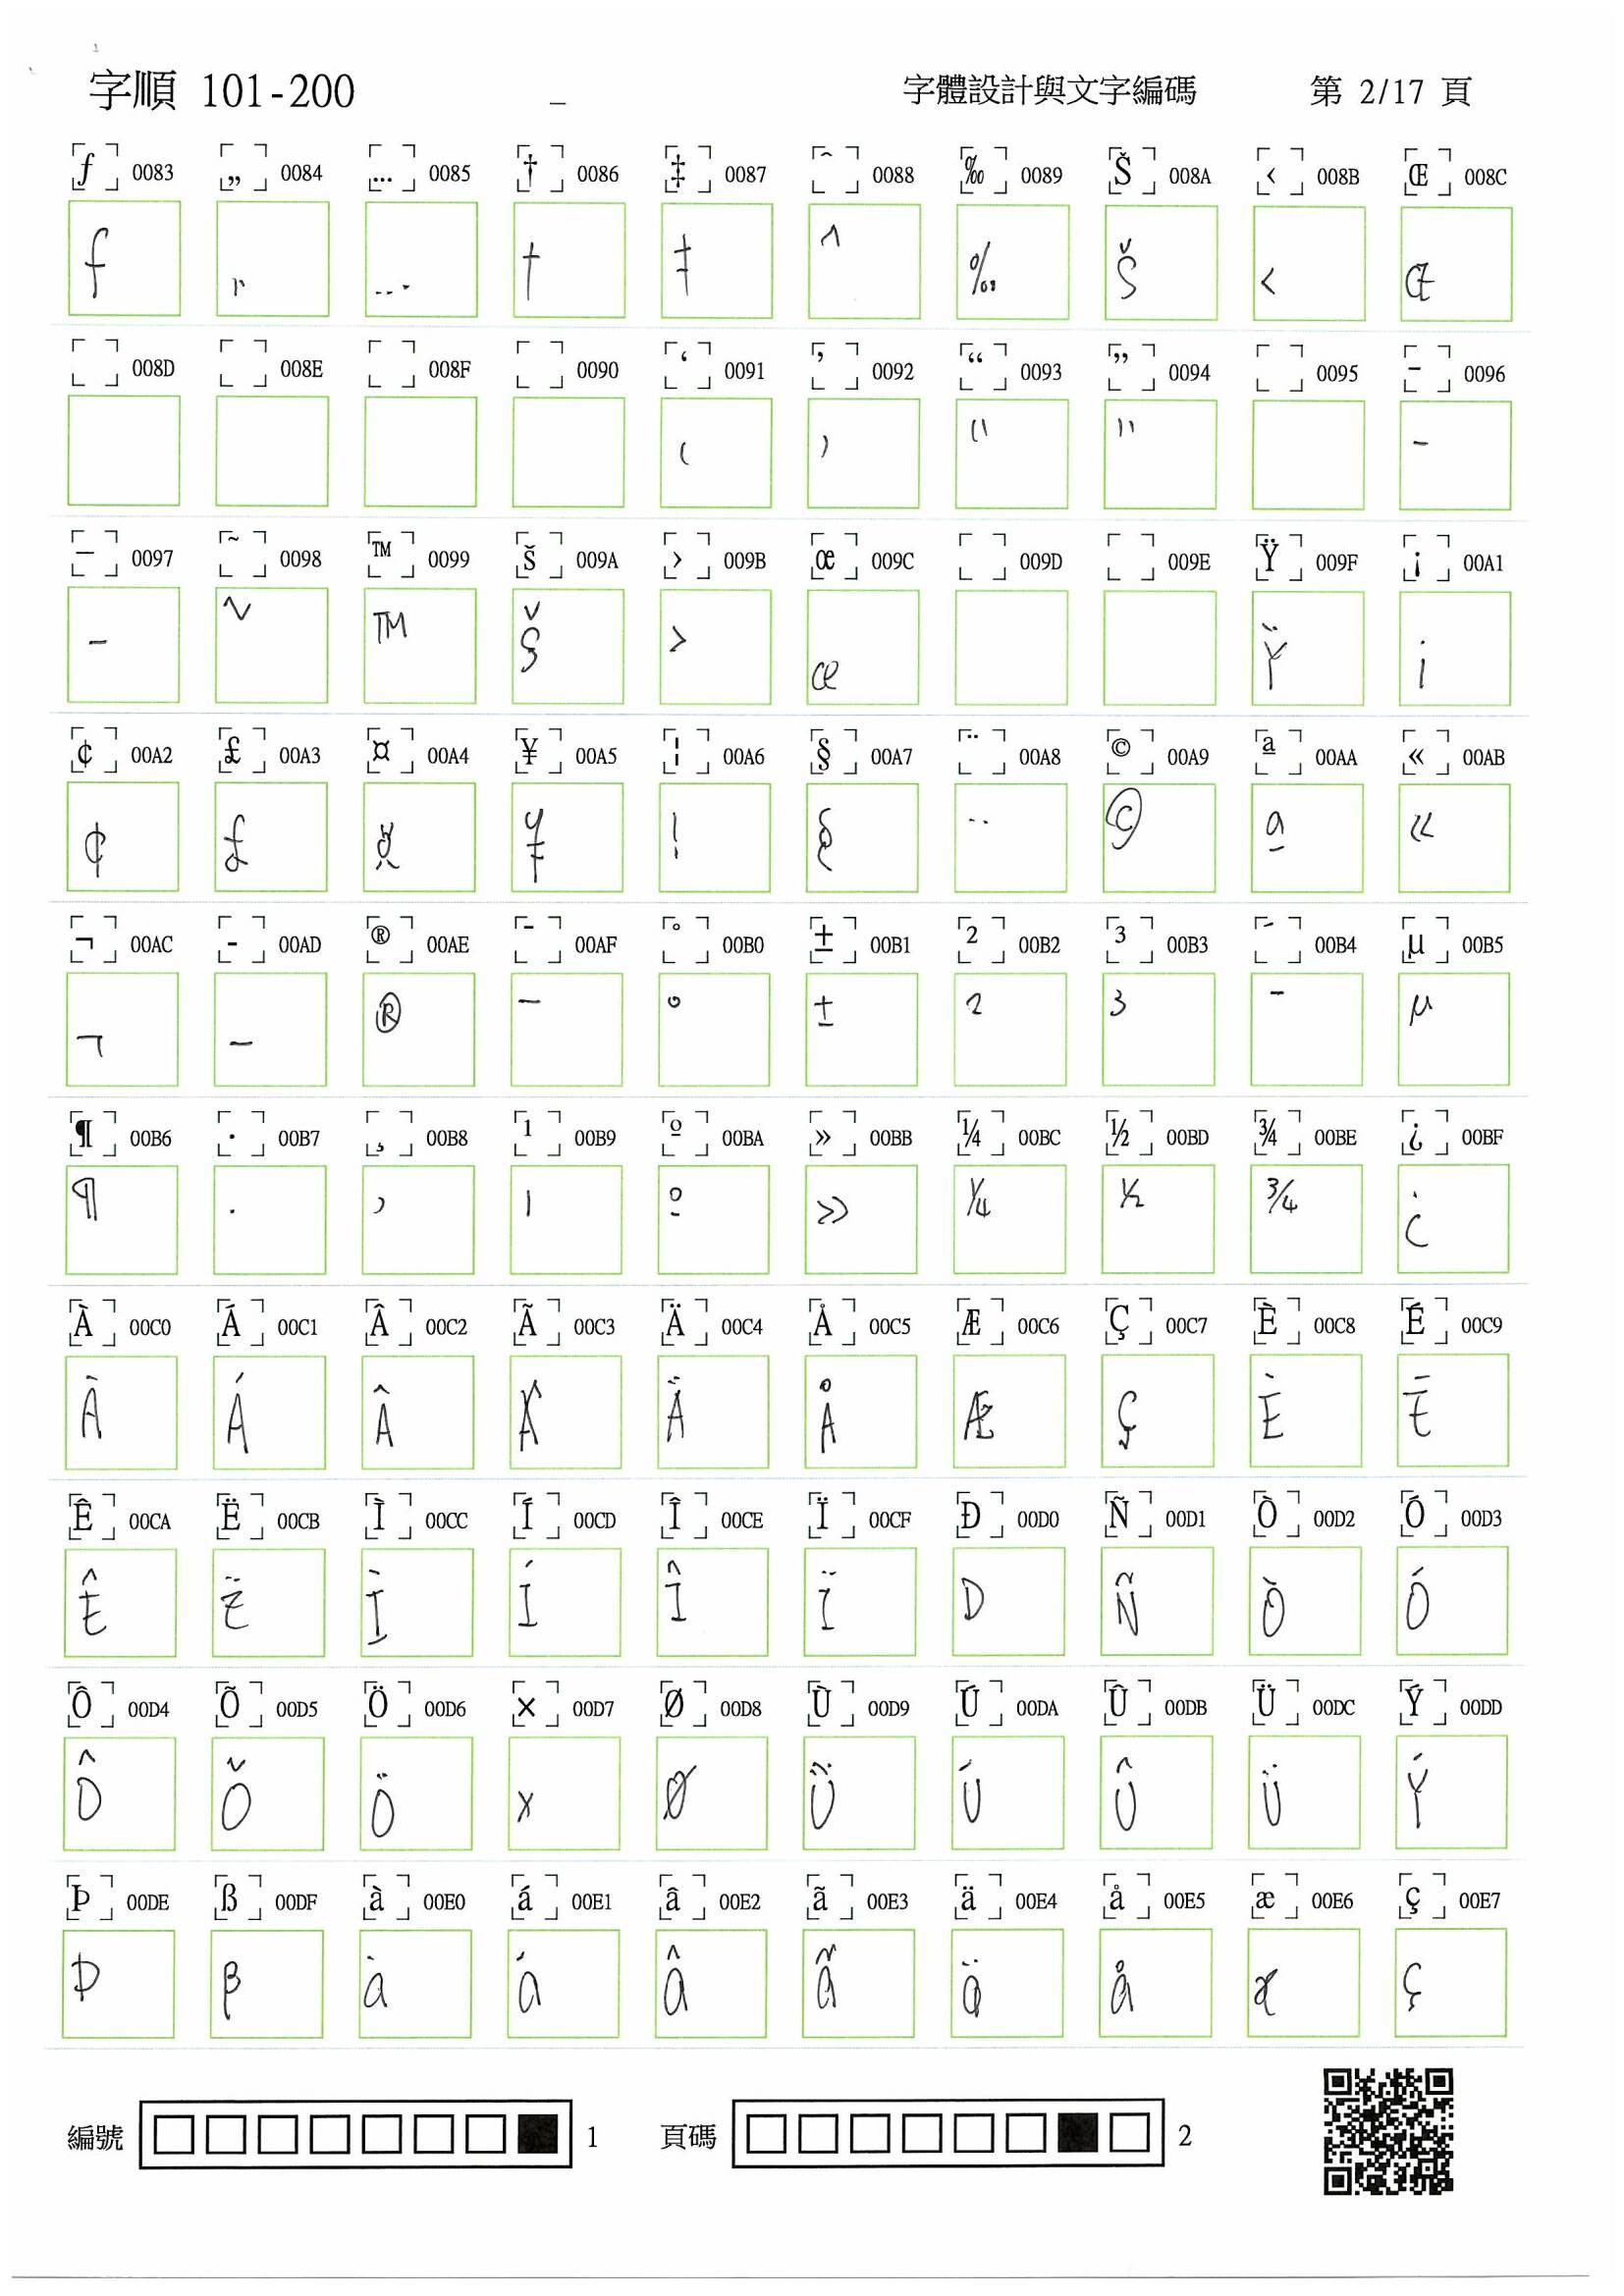 字順 101-200 字體設計與文字編碼 第 2/17 頁
ƒ 0083 „ 0084 … 0085 † 0086 ‡ 0087 ˆ 0088 ‰ 0089 Š 008A ‹ 008B Œ 008C
ƒ „ … † ‡ ˆ ‰ Š ‹ Œ
008D 008E 008F 0090 ‘ 0091 ’ 0092 “ 0093 ” 0094 0095 – 0096
‘ ’ “ ” –
— 0097 ˜ 0098 ™ 0099 š 009A › 009B œ 009C 009D 009E Ÿ 009F ¡ 00A1
— ˜ ™ š › œ Ÿ ¡
¢ 00A2 £ 00A3 ¤ 00A4 ¥ 00A5 ¦ 00A6 § 00A7 ¨ 00A8 © 00A9 ª 00AA « 00AB
¢ £ ¤ ¥ ¦ § ¨ © ª «
¬ 00AC - 00AD ® 00AE ¯ 00AF ° 00B0 ± 00B1 ² 00B2 ³ 00B3 ´ 00B4 µ 00B5
¬ - ® ¯ ° ± ² ³ ´ µ
¶ 00B6 · 00B7 ¸ 00B8 ¹ 00B9 º 00BA » 00BB ¼ 00BC ½ 00BD ¾ 00BE ¿ 00BF
¶ · ¸ ¹ º » ¼ ½ ¾ ¿
À 00C0 Á 00C1 Â 00C2 Ã 00C3 Ä 00C4 Å 00C5 Æ 00C6 Ç 00C7 È 00C8 É 00C9
À Á Â Ã Ä Å Æ Ç È É
Ê 00CA Ë 00CB Ì 00CC Í 00CD Î 00CE Ï 00CF Ð 00D0 Ñ 00D1 Ò 00D2 Ó 00D3
Ê Ë Ì Í Î Ï D Ñ Ò Ó
Ô 00D4 Õ 00D5 Ö 00D6 × 00D7 Ø 00D8 Ù 00D9 Ú 00DA Û 00DB Ü 00DC Ý 00DD
Ô Õ Ö × Ø Ü Ú Û Ü Ý
Þ 00DE ß 00DF à 00E0 á 00E1 â 00E2 ã 00E3 ä 00E4 å 00E5 æ 00E6 ç 00E7
Þ ß à á â ã ä å æ ç
編號 1 頁碼 2